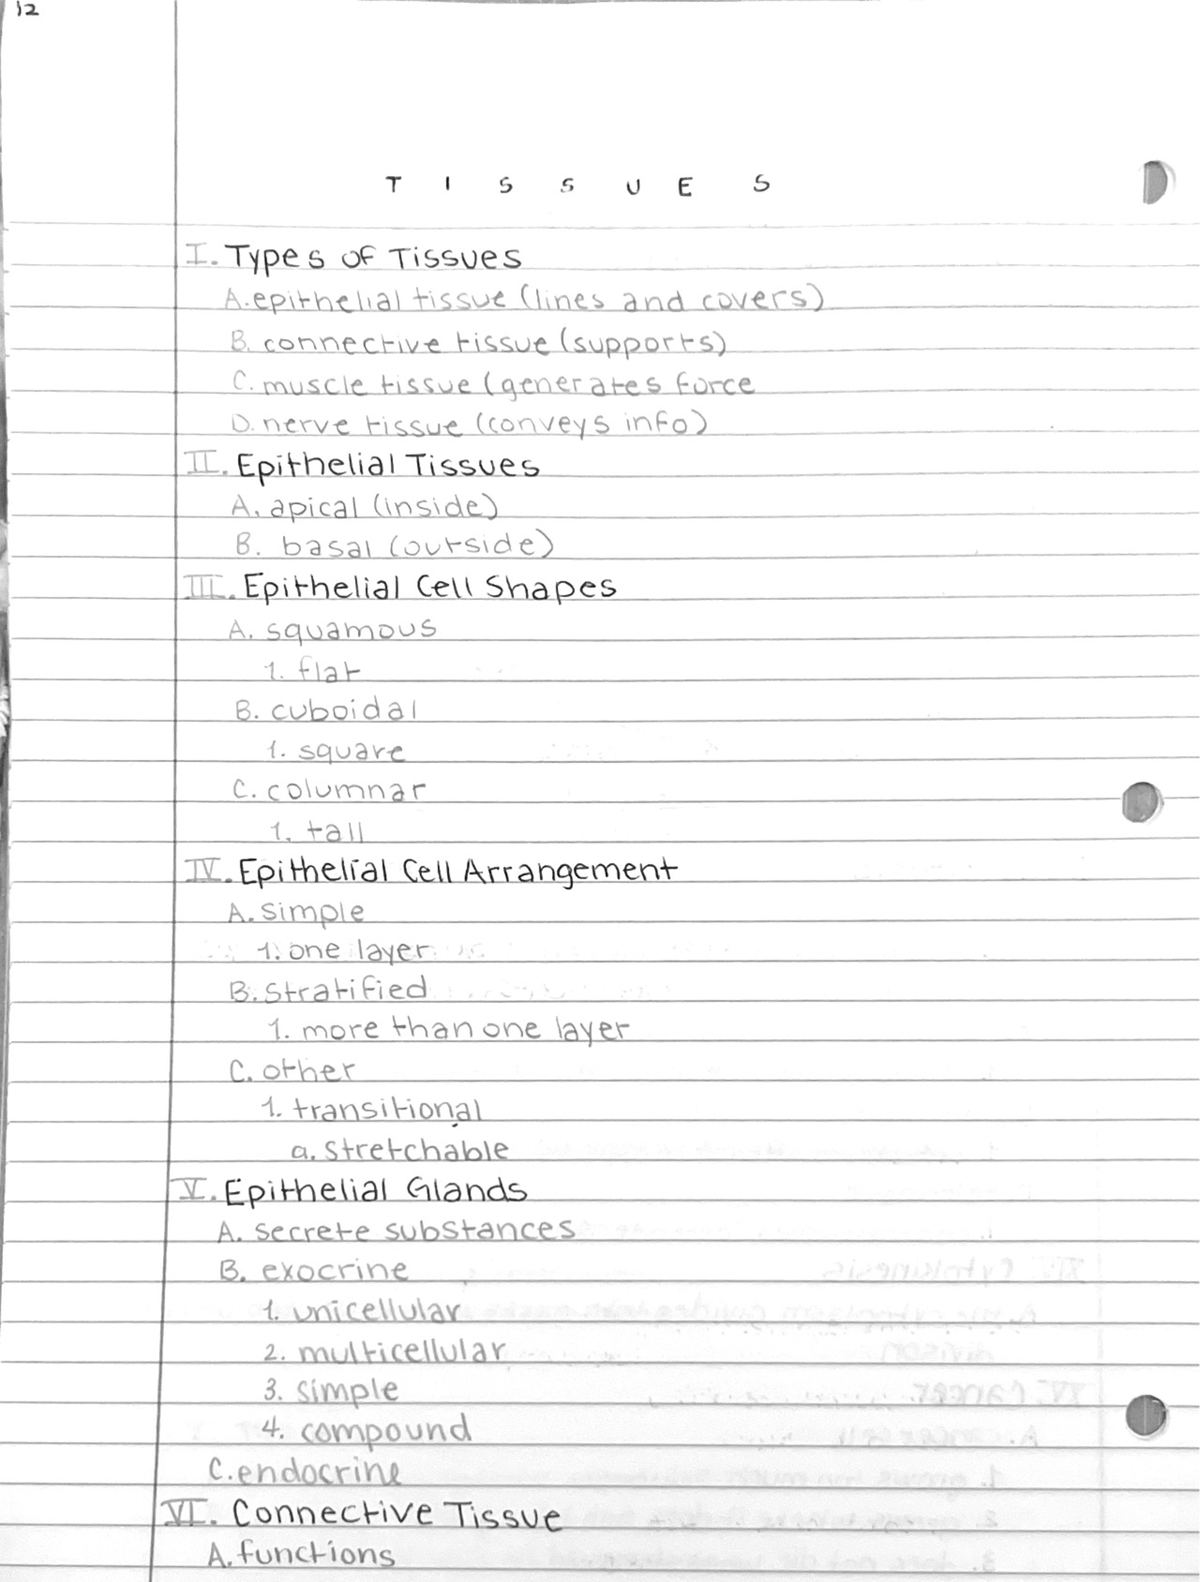 12
T I S S U E S
I. Types of Tissues
A. epithelial tissue (lines and covers)
B. connective tissue (supports)
C. muscle tissue (generates force
D. nerve tissue (conveys info)
II. Epithelial Tissues
A. apical (inside)
B. basal (outside)
III. Epithelial Cell Shapes
A. squamous
1. flat
B. cuboidal
1. square
C. columnar
1. tall
IV. Epithelial Cell Arrangement
A. simple
1. one layer
B. stratified
1. more than one layer
C. other
1. transitional
a. stretchable
V. Epithelial Glands
A. secrete substances
B. exocrine
1. unicellular
2. multicellular
3. simple
4. compound
C. endocrine
VI. Connective Tissue
A. functions